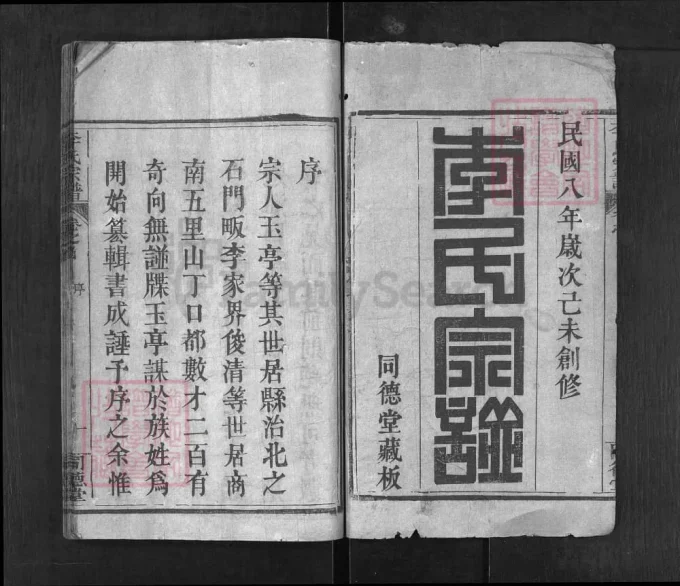 民國八年歲次己未創修
李氏宗譜
同德堂藏板
序
宗人玉亭等其世居縣治北之
石門畈李家界俊清等世居商
南五里山丁口都數才二百有
奇向無譜牒玉亭謀於族姓爲
開始纂輯書成諈予序之余惟
李氏宗譜
序
一
同德堂
FamilySearch